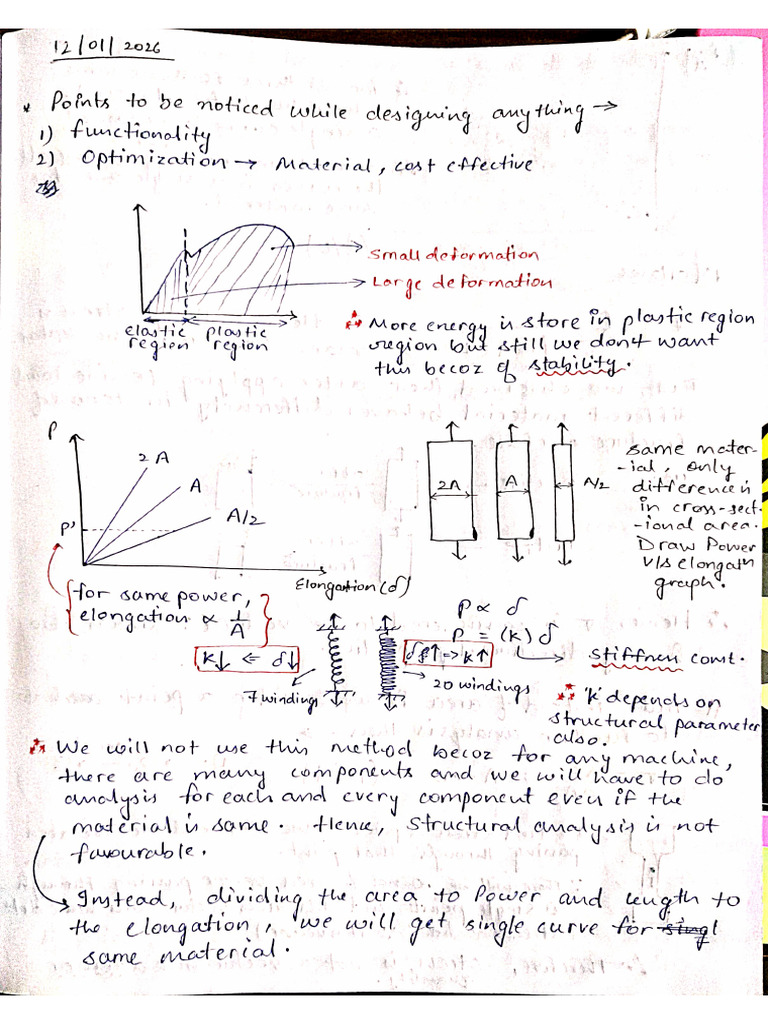 12/01/2026
* Points to be noticed while designing anything →
1) functionality
2) Optimization → Material, cost effective
Small deformation
Large deformation
elastic region
plastic region
∴ More energy is store in plastic region
region but still we don't want
this becoz of stability.
P
2A
A
A/2
P'
Elongation (δ)
2A
A
A/2
same mater-
-ial, only
difference is
in cross-sect
-ional area.
Draw Power
v/s elongatn
graph.
for same power,
elongation ∝ 1/A
k↓ ⇐ δ↓
7 windings
δ↑ => k↑
20 windings
P ∝ δ
P = (k) δ
stiffness const.
'k' depends on
structural parameter
also.
∴ We will not use this method becoz for any machine,
there are many components and we will have to do
analysis for each and every component even if the
material is same. Hence, structural analysis is not
favourable.
→ Instead, dividing the area to Power and length to
the elongation, we will get single curve for singl
same material.